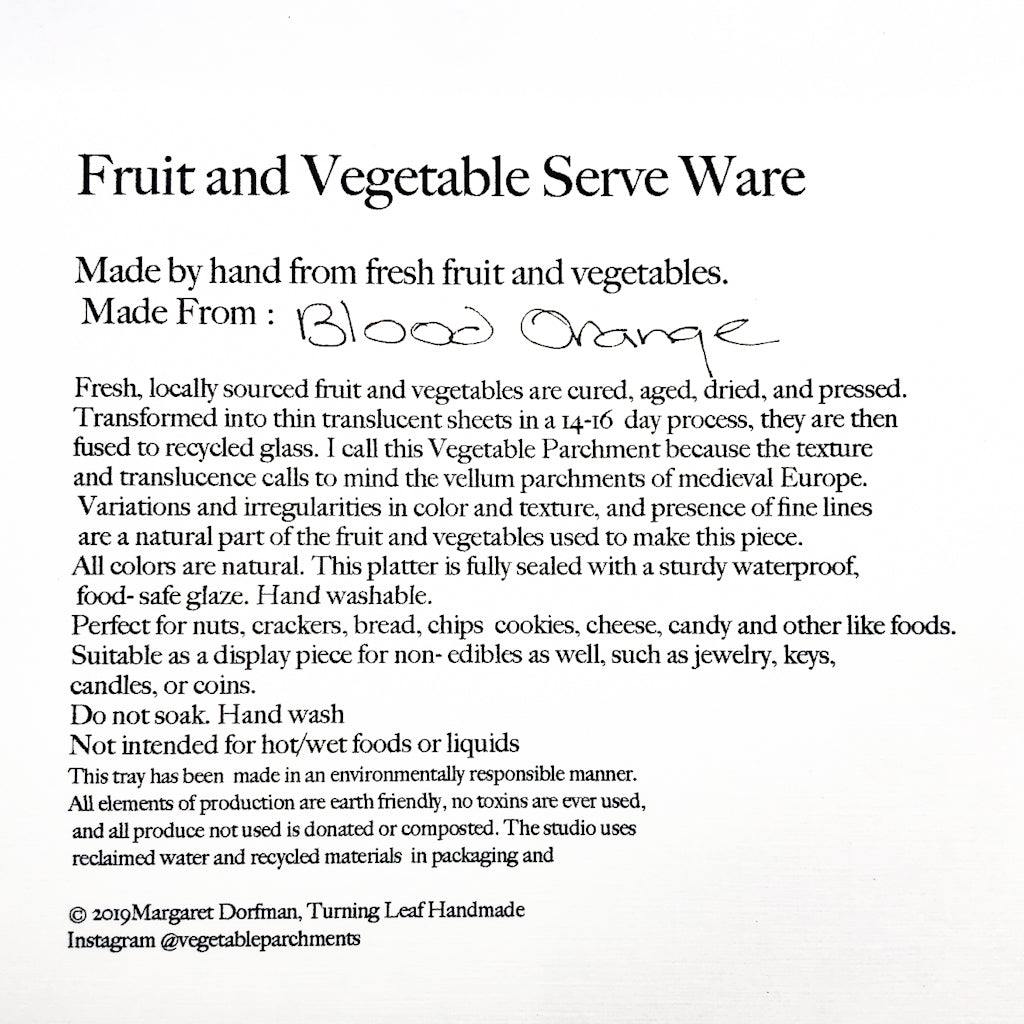 Fruit and Vegetable Serve Ware
Made by hand from fresh fruit and vegetables.
Made From : Blood Orange
Fresh, locally sourced fruit and vegetables are cured, aged, dried, and pressed.
Transformed into thin translucent sheets in a 14-16 day process, they are then
fused to recycled glass. I call this Vegetable Parchment because the texture
and translucence calls to mind the vellum parchments of medieval Europe.
Variations and irregularities in color and texture, and presence of fine lines
are a natural part of the fruit and vegetables used to make this piece.
All colors are natural. This platter is fully sealed with a sturdy waterproof,
food- safe glaze. Hand washable.
Perfect for nuts, crackers, bread, chips cookies, cheese, candy and other like foods.
Suitable as a display piece for non- edibles as well, such as jewelry, keys,
candles, or coins.
Do not soak. Hand wash
Not intended for hot/wet foods or liquids
This tray has been made in an environmentally responsible manner.
All elements of production are earth friendly, no toxins are ever used,
and all produce not used is donated or composted. The studio uses
reclaimed water and recycled materials in packaging and
© 2019Margaret Dorfman, Turning Leaf Handmade
Instagram @vegetableparchments